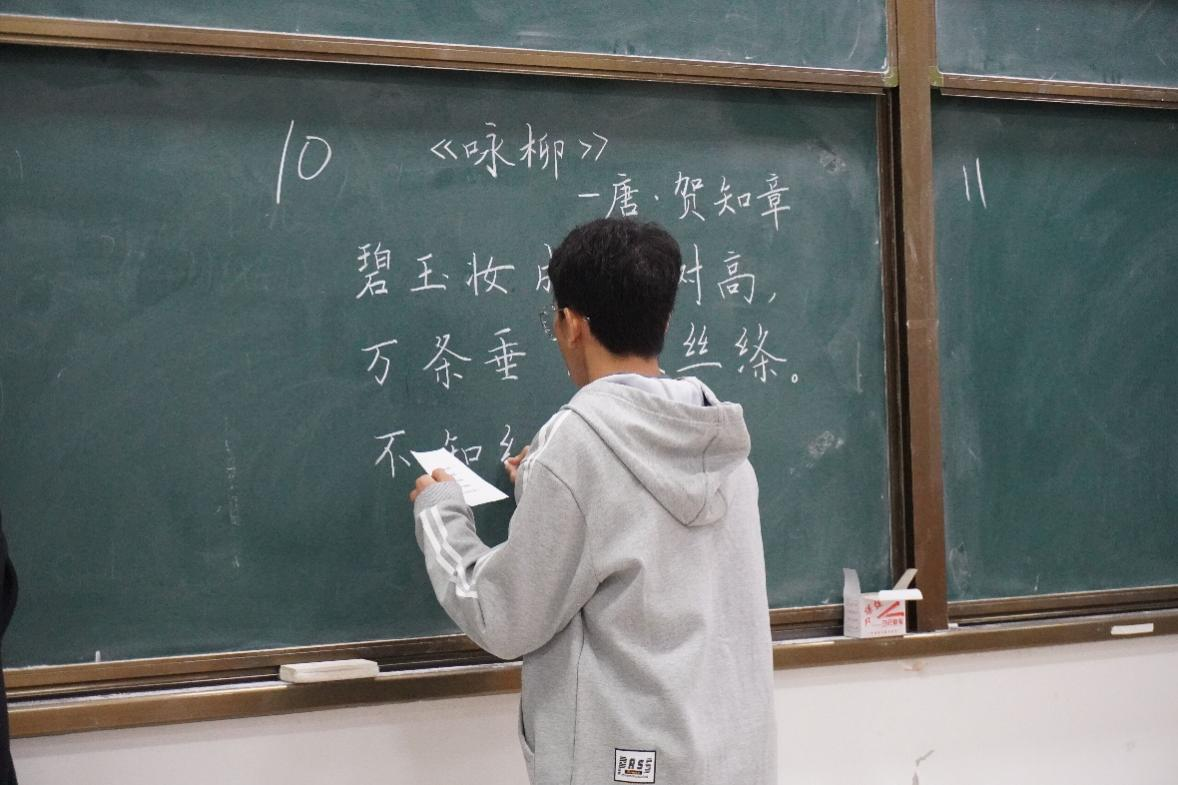 10
《咏柳》
-唐·贺知章
碧玉妆 对高,
万条垂 丝绦。
不知
11